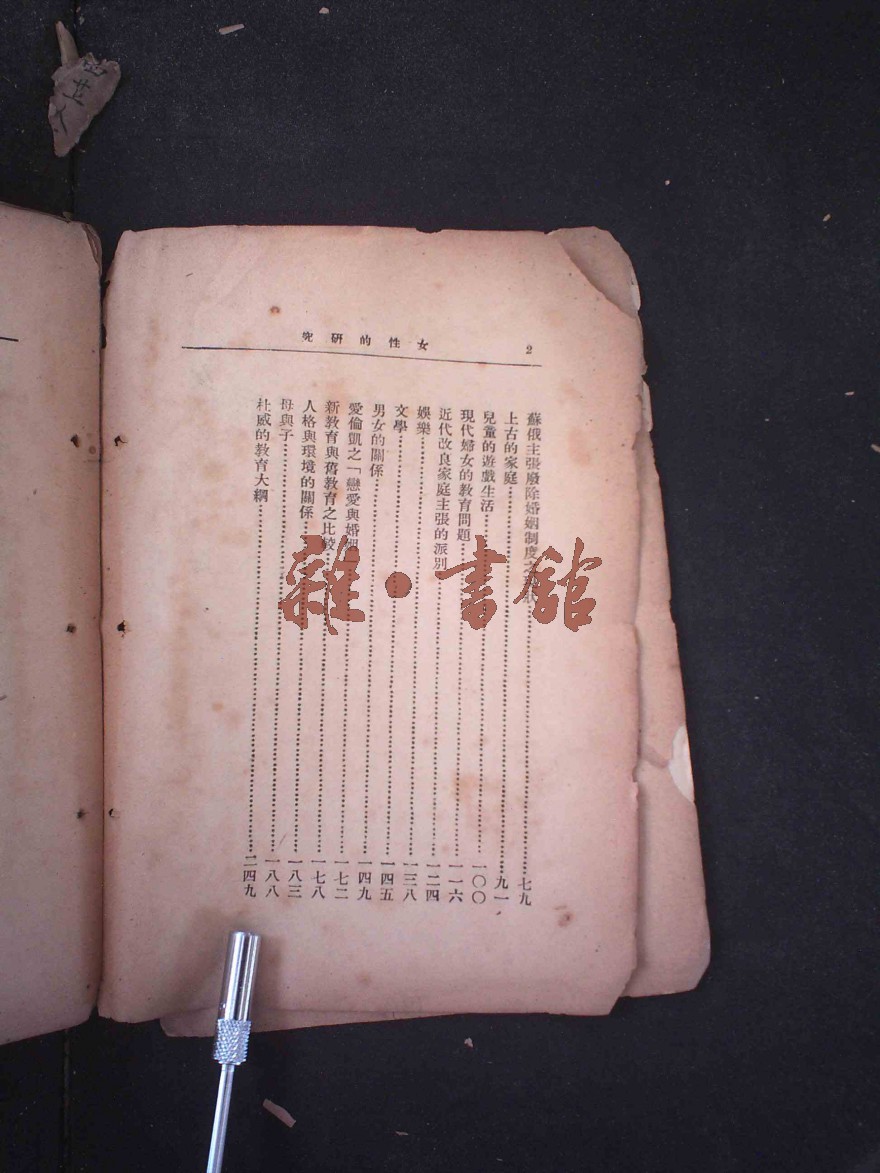 女性的研究
2
蘇俄主張廢除婚姻制度之⋯⋯七九
上古的家庭⋯⋯九一
兒童的遊戲生活⋯⋯一〇〇
現代婦女的教育問題⋯⋯一一六
近代改良家庭主張的派別⋯⋯一二四
娛樂⋯⋯一三八
文學⋯⋯一四五
男女的關係⋯⋯一四九
愛倫凱之「戀愛與婚姻⋯⋯一七二
新教育與舊教育之比較⋯⋯一七八
人格與環境的關係⋯⋯一八三
母與子⋯⋯一八八
杜威的教育大綱⋯⋯二四九
雜·書館